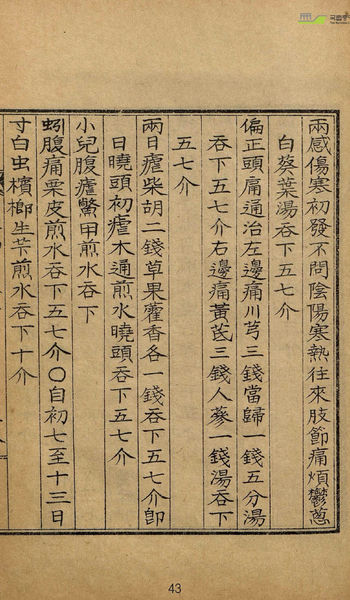 兩感傷寒初發不問陰陽寒熱往來肢節痛煩鬱蔥
白葵葉湯吞下五七介
偏正頭痛通治左邊痛川芎三錢當歸一錢五分湯
吞下五七介右邊痛黃芪三錢人蔘一錢湯吞下
五七介
兩日瘧柴胡二錢草果藿香各一錢吞下五七介卽
日曉頭初瘧木通煎水曉頭吞下五七介
小兒腹瘧鱉甲煎水吞下
蚓腹痛栗皮煎水吞下五七介〇自初七至十三日
寸白虫檳榔生芐煎水吞下十介
43